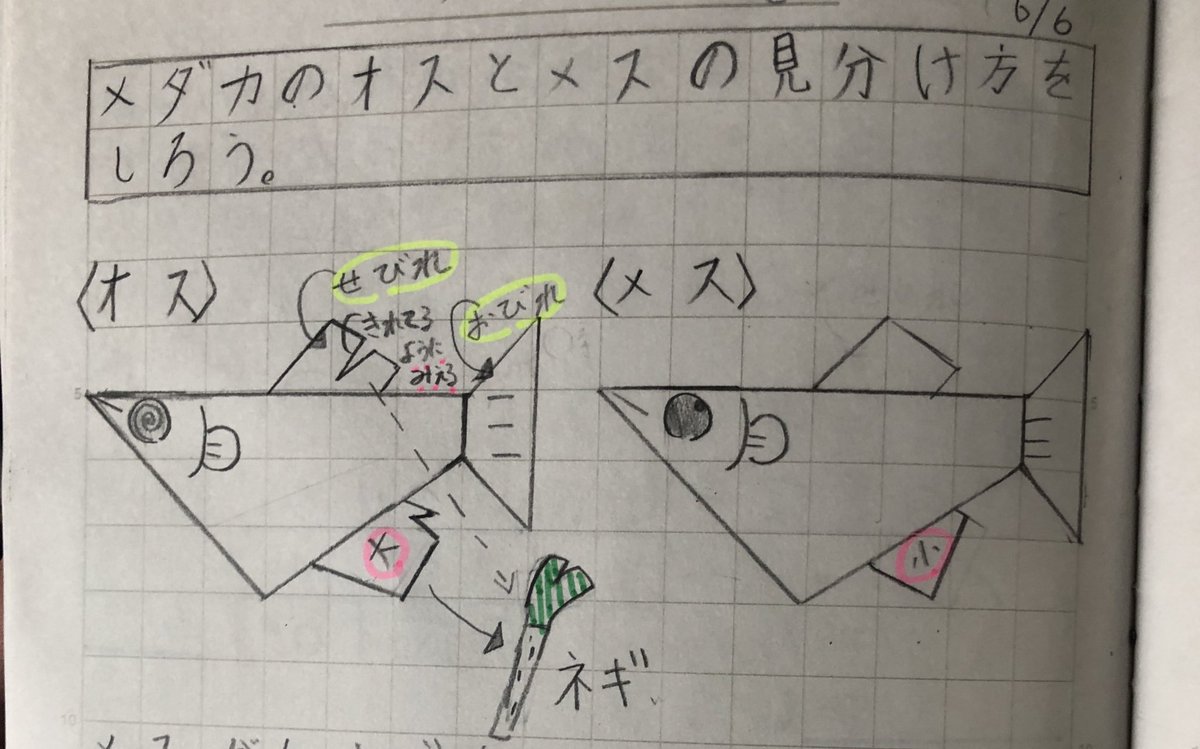 6/6
メダカのオスとメスの見分け方を
しろう。
〈オス〉
せびれ
きれてる
ように
みえる
おびれ
大
ネギ
〈メス〉
小
5
10